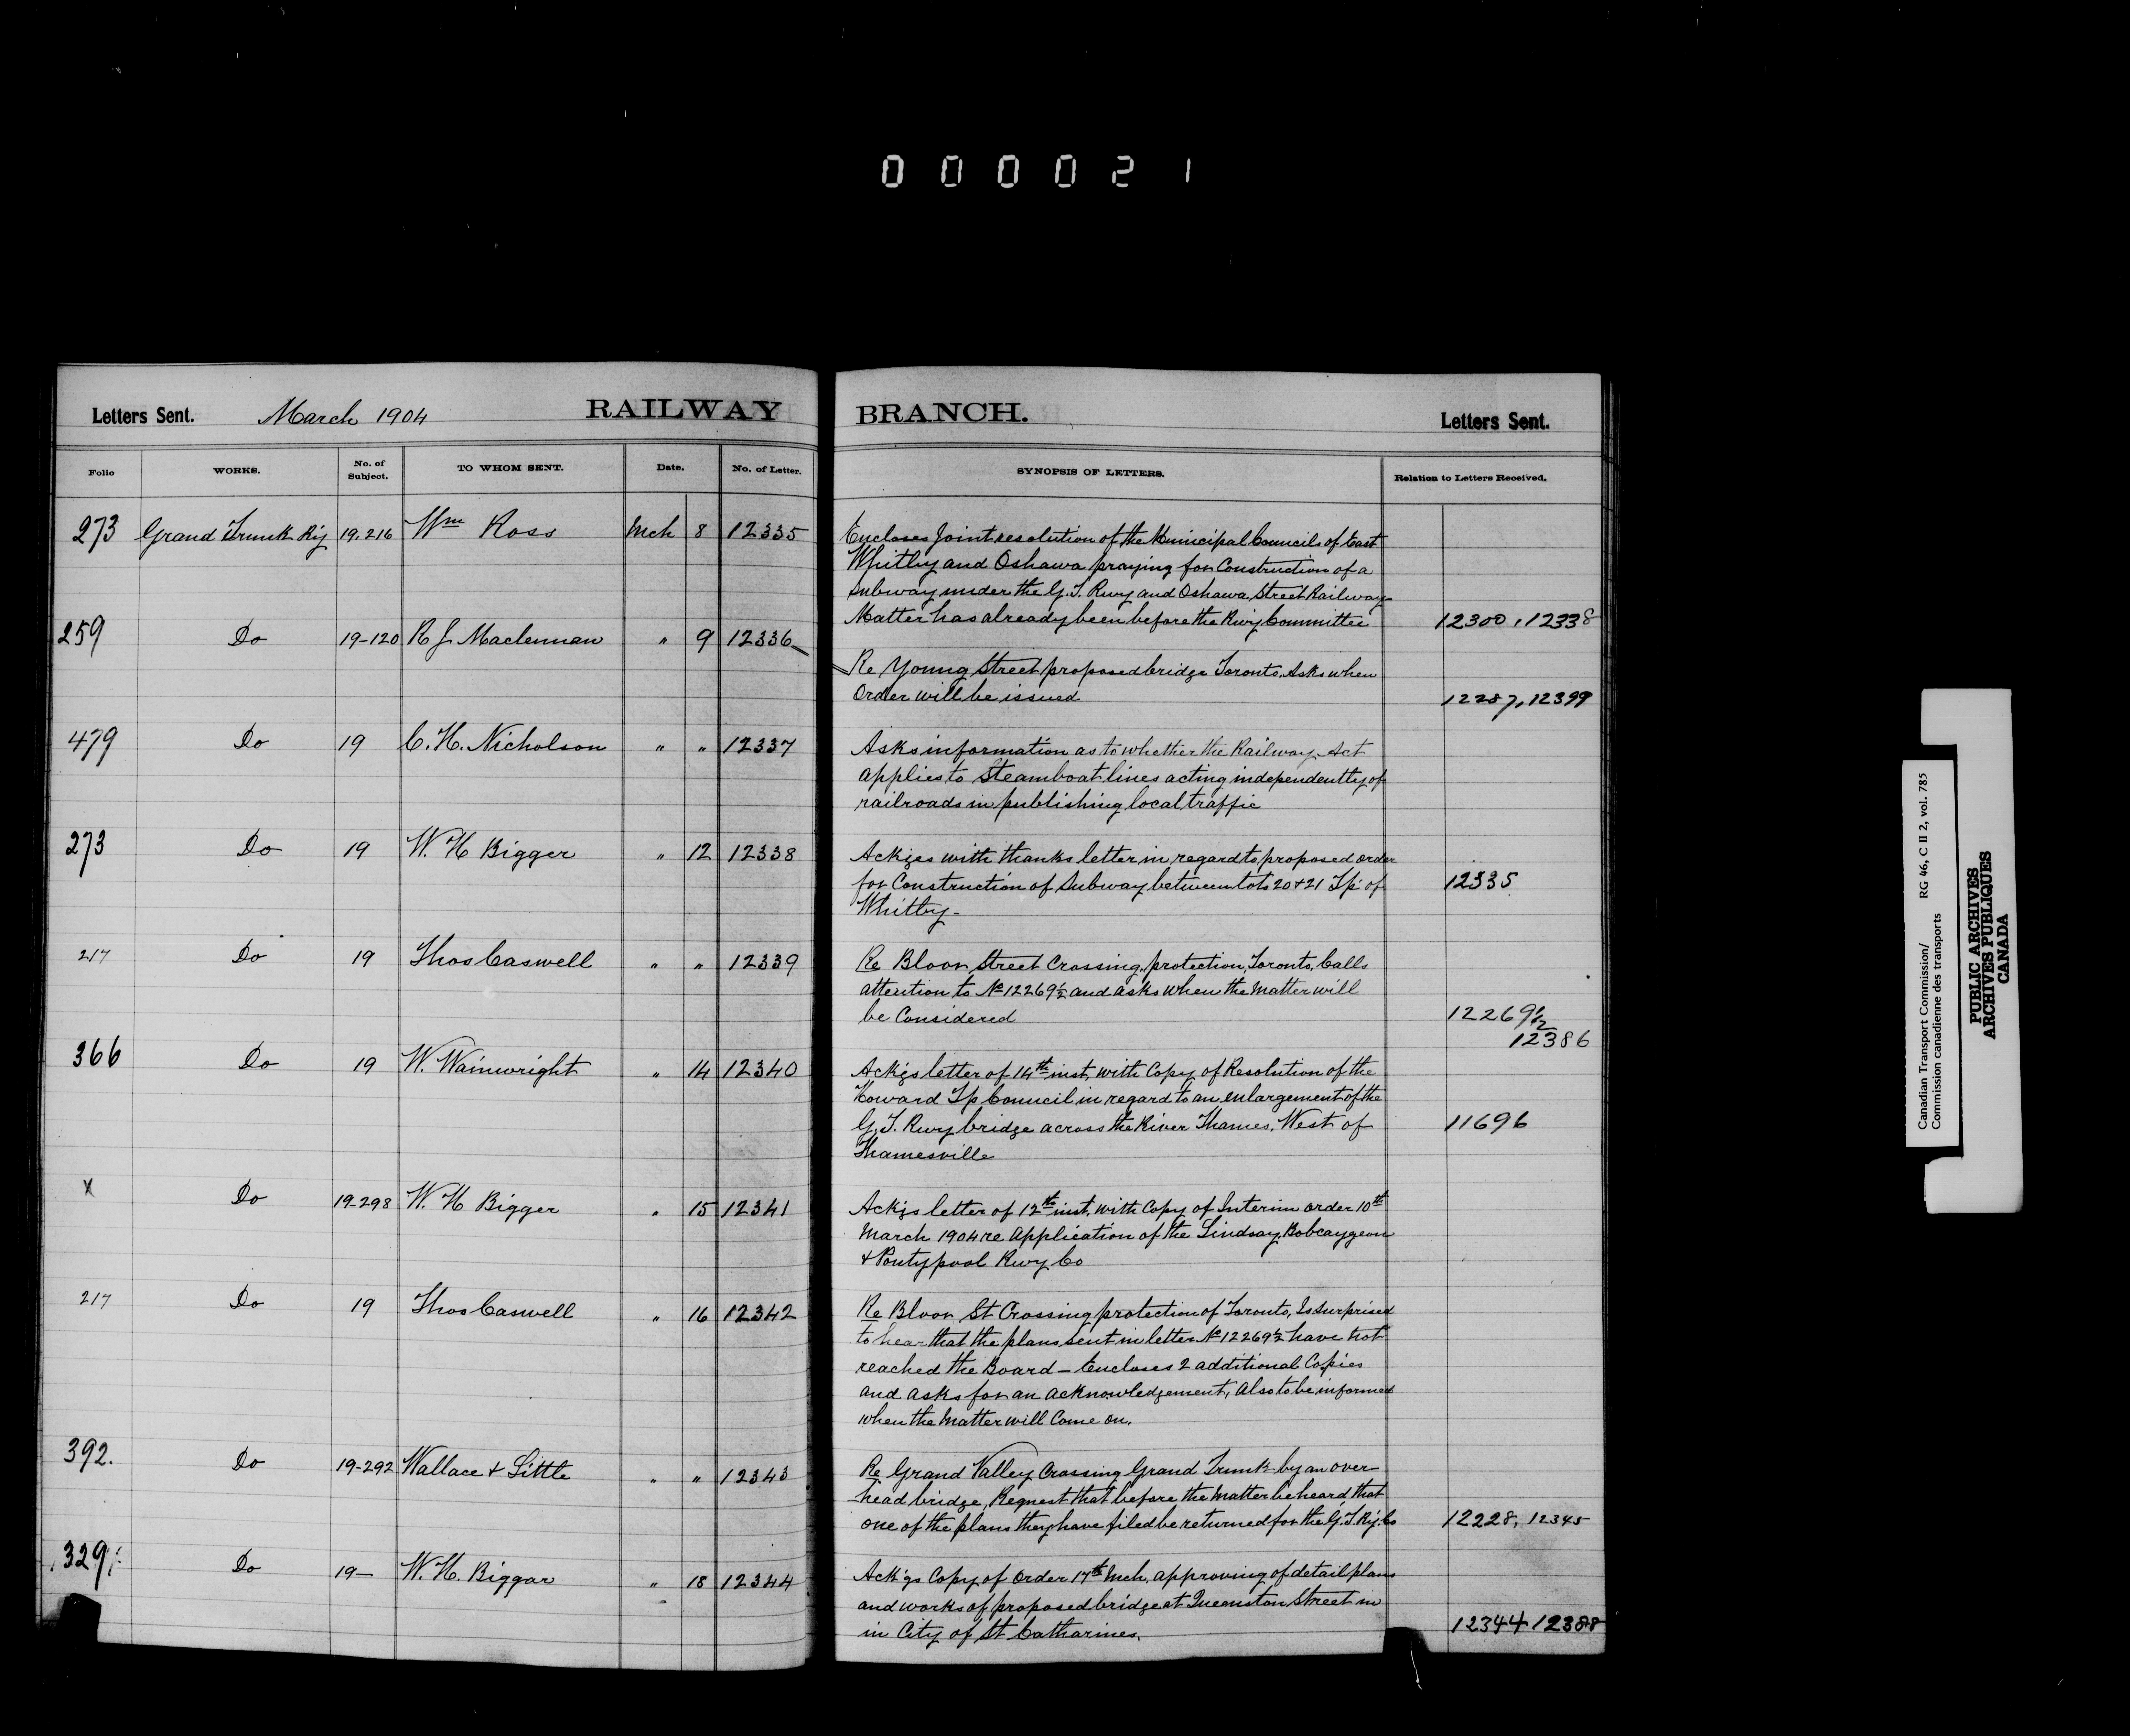 000021
Letters Sent. March 1904 RAILWAY BRANCH. Letters Sent.
Folio WORKS. No. of Subject. TO WHOM SENT. Date. No. of Letter. SYNOPSIS OF LETTERS. Relation to Letters Received.
273 Grand Trunk Ry 19.216 Wm Ross Mch 8 12335 Encloses Joint resolution of the Municipal Councils of East
Whitby and Oshawa praying for Construction of a
Subway under the G.T. Rwy and Oshawa Street Railway
Matter has already been before the Rwy Committee 12300, 12338
259 Do 19-120 R J Maclennan " 9 12336
Re Young Street proposed bridge Toronto. Asks when
Order will be issued 12287, 12399
479 Do 19 C. H. Nicholson " " 12337 Asks information as to whether the Railway Act
applies to Steamboat lines acting independently of
railroads in publishing local traffic
273 Do 19 W. H Bigger " 12 12338 Ackges with thanks letter in regard to proposed order
for Construction of Subway between lots 20 + 21 Tp. of 12335
Whitby-
217 Do 19 Thos Caswell " " 12339 Re Bloor Street Crossing, protection, Toronto, Calls
attention to No 12269½ and asks when the Matter will
be Considered 12269½
12386
366 Do 19 W. Wainwright " 14 12340 Ackgs letter of 14th inst, with Copy of Resolution of the
Howard Tp Council in regard to an enlargement of the
G.T. Rwy bridge across the River Thames, West of 11696
Thamesville
x Do 19-298 W. H Bigger " 15 12341 Ackgs letter of 12th inst, with Copy of Interim order 10th
March 1904 re Application of the Lindsay, Bobcaygeon
+ Pontypool Rwy Co
217 Do 19 Thos Caswell " 16 12342 Re Bloor St Crossing protection of Toronto, Is surprised
to hear that the plans sent in letter No 12269½ have not
reached the Board - Encloses 2 additional Copies
and asks for an acknowledgement, Also to be informed
when the Matter will Come on.
392. Do 19-292 Wallace + Little " " 12343 Re Grand Valley Crossing Grand Trunk by an over-
head bridge, Request that before the Matter be heard, that
one of the plans they have filed be returned for the G.T. Ry. Co 12228, 12345
329 Do 19- W. H. Biggar " 18 12344 Ack'gs Copy of Order 17th Mch, approving of detail plans
and works of proposed bridge at Queenston Street in
in City of St Catharines. 12344 12388
Canadian Transport Commission/ RG 46, C II 2, vol. 785
Commission canadienne des transports
PUBLIC ARCHIVES
ARCHIVES PUBLIQUES
CANADA